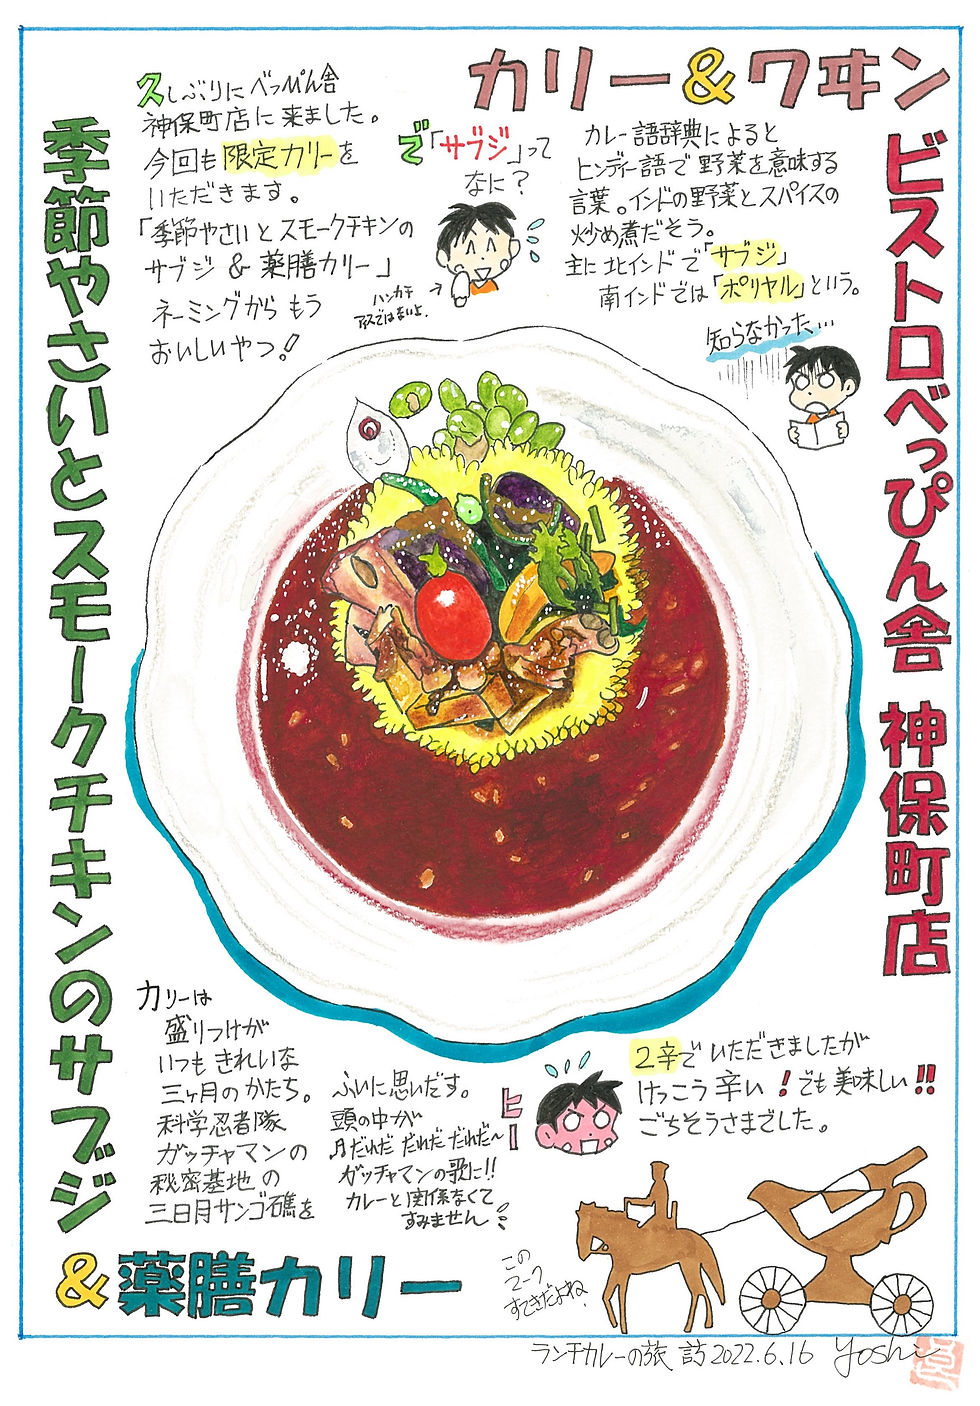 カリー&ワヰン
ビストロべっぴん舎 神保町店
季節やさいとスモークチキンのサブジ
&薬膳カリー
久しぶりにべっぴん舎
神保町店に来ました。
今回も限定カリーを
いただきます。
「季節やさいとスモークチキンの
サブジ & 薬膳カリー」
ネーミングからもう
おいしいやつ!
で「サブジ」って
なに?
ハンカチ
ではないよ。
カレー語辞典によると
ヒンディー語で野菜を意味する
言葉。インドの野菜とスパイスの
炒め煮だそう。
主に北インドで「サブジ」
南インドでは「ポリヤル」という。
知らなかった…
カリーは
盛りつけが
いつもきれいな
三ヶ月のかたち。
科学忍者隊
ガッチャマンの
秘密基地の
三日月サンゴ礁を
ふいに思いだす。
頭の中が
♬だれだ だれだ だれだ~
ガッチャマンの歌に!!
カレーと関係なくて
すみません
ヒー
2辛でいただきましたが
けっこう辛い!でも美味しい!!
ごちそうさまでした。
この
マーク
すてきだよね。
ランチカレーの旅 訪2022.6.16 Yoshi